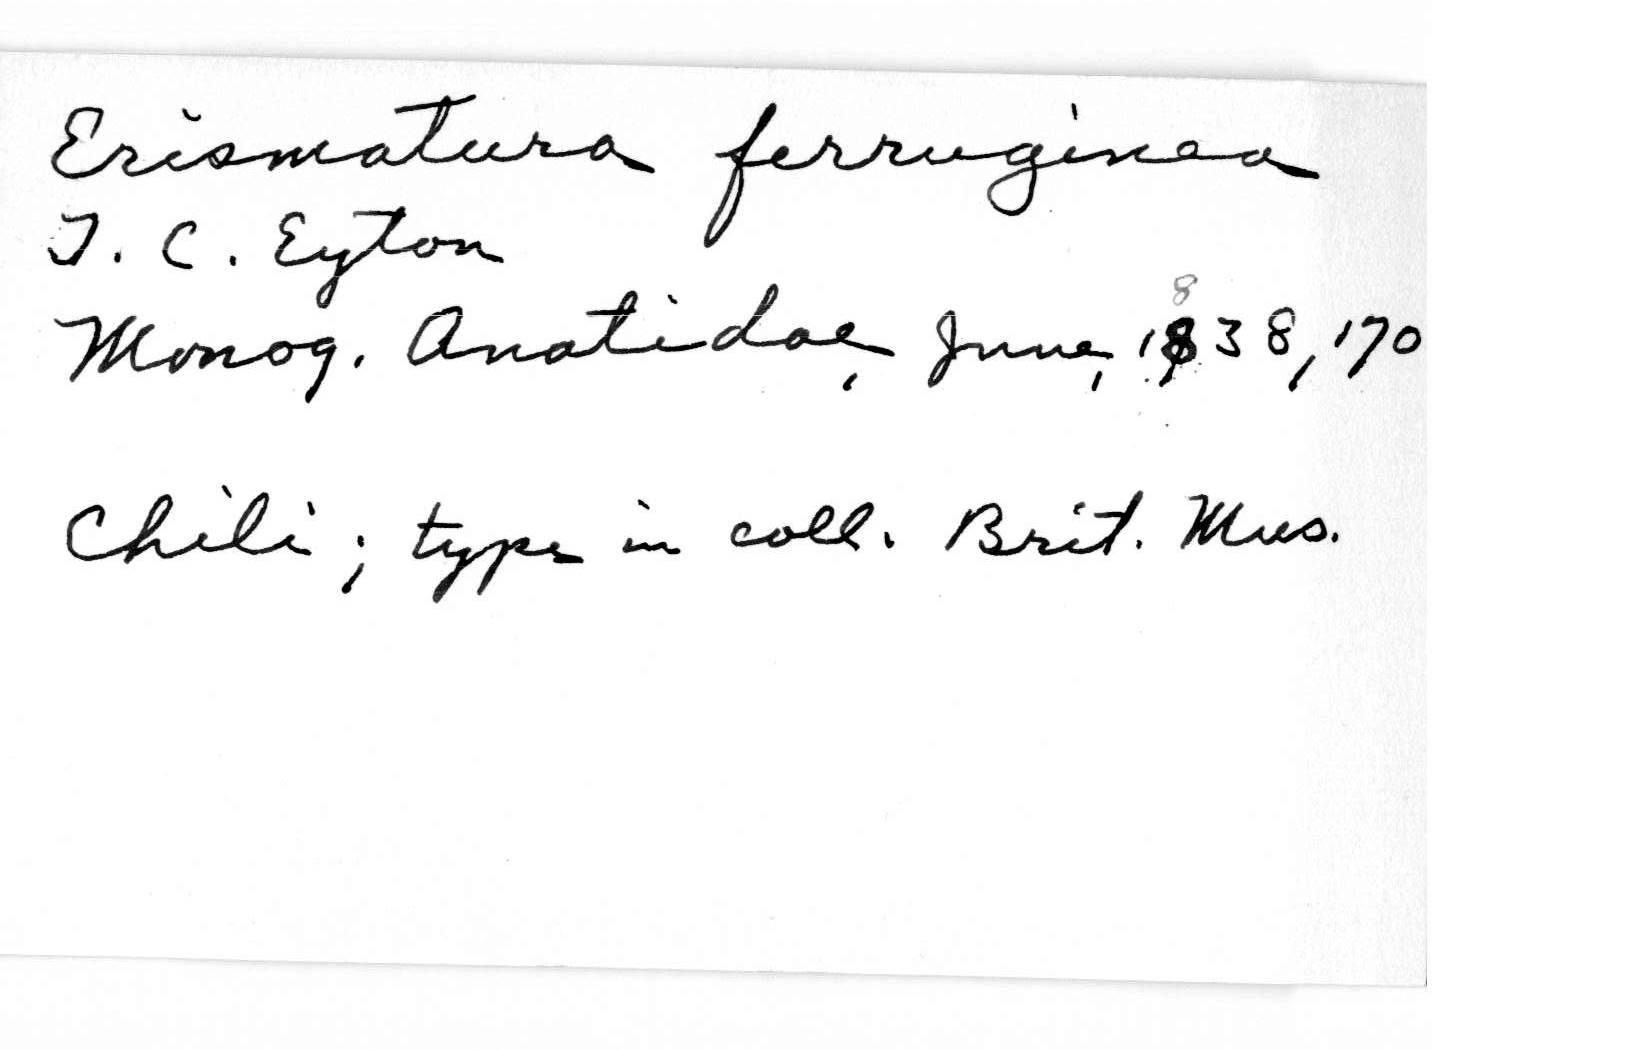 Erismatura ferruginea
T. C. Eyton
Monog. Anatidae, June, 1838, 170
8
Chili; type in coll. Brit. Mus.